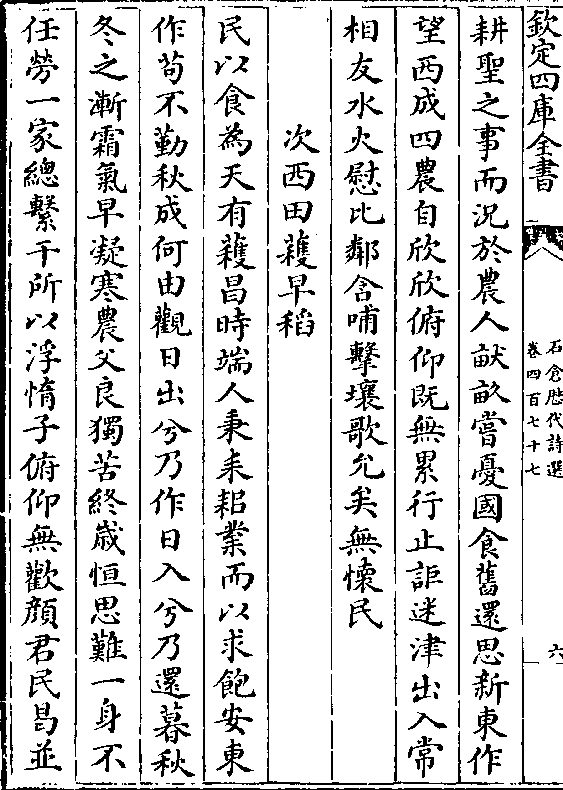 欽定四庫全書
石倉歴代詩選
卷四百七十七
六
耕聖之事而況於農人畎畝嘗憂國食舊還思新東作
望西成四農自欣欣俯仰既無累行止詎迷津出入常
相友水火慰比鄰含哺擊壤歌允矣無懷民
次西田穫早稻
民以食為天有穫昌時端人秉耒耜業而以求飽安東
作苟不勤秋成何由觀日出兮乃作日入兮乃還暮秋
冬之漸霜氣早凝寒農父良獨苦終歳恒思難一身不
任勞一家總繫干所以浮惰子俯仰無歡顔君民曷並